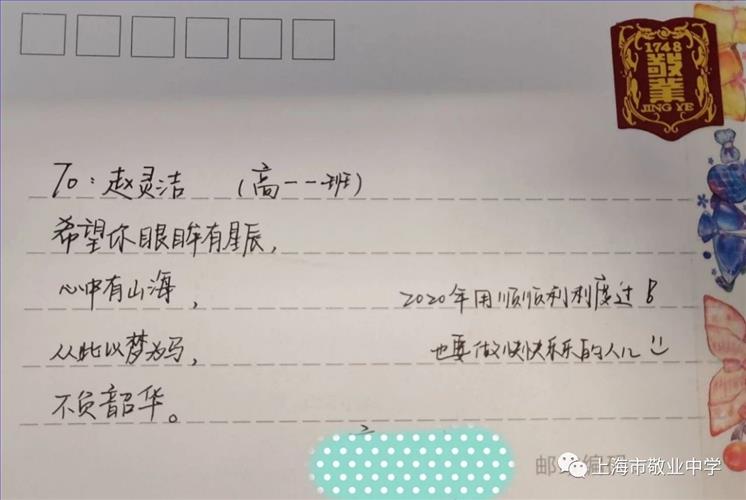 1748
敬業
JING YE
To：赵灵洁 （高一一班）
希望你眼眸有星辰，
心中有山海，
从此以梦为马，
不负韶华。
2020年用顺顺利利度过
也要做快快乐乐的人儿
邮
上海市敬业中学